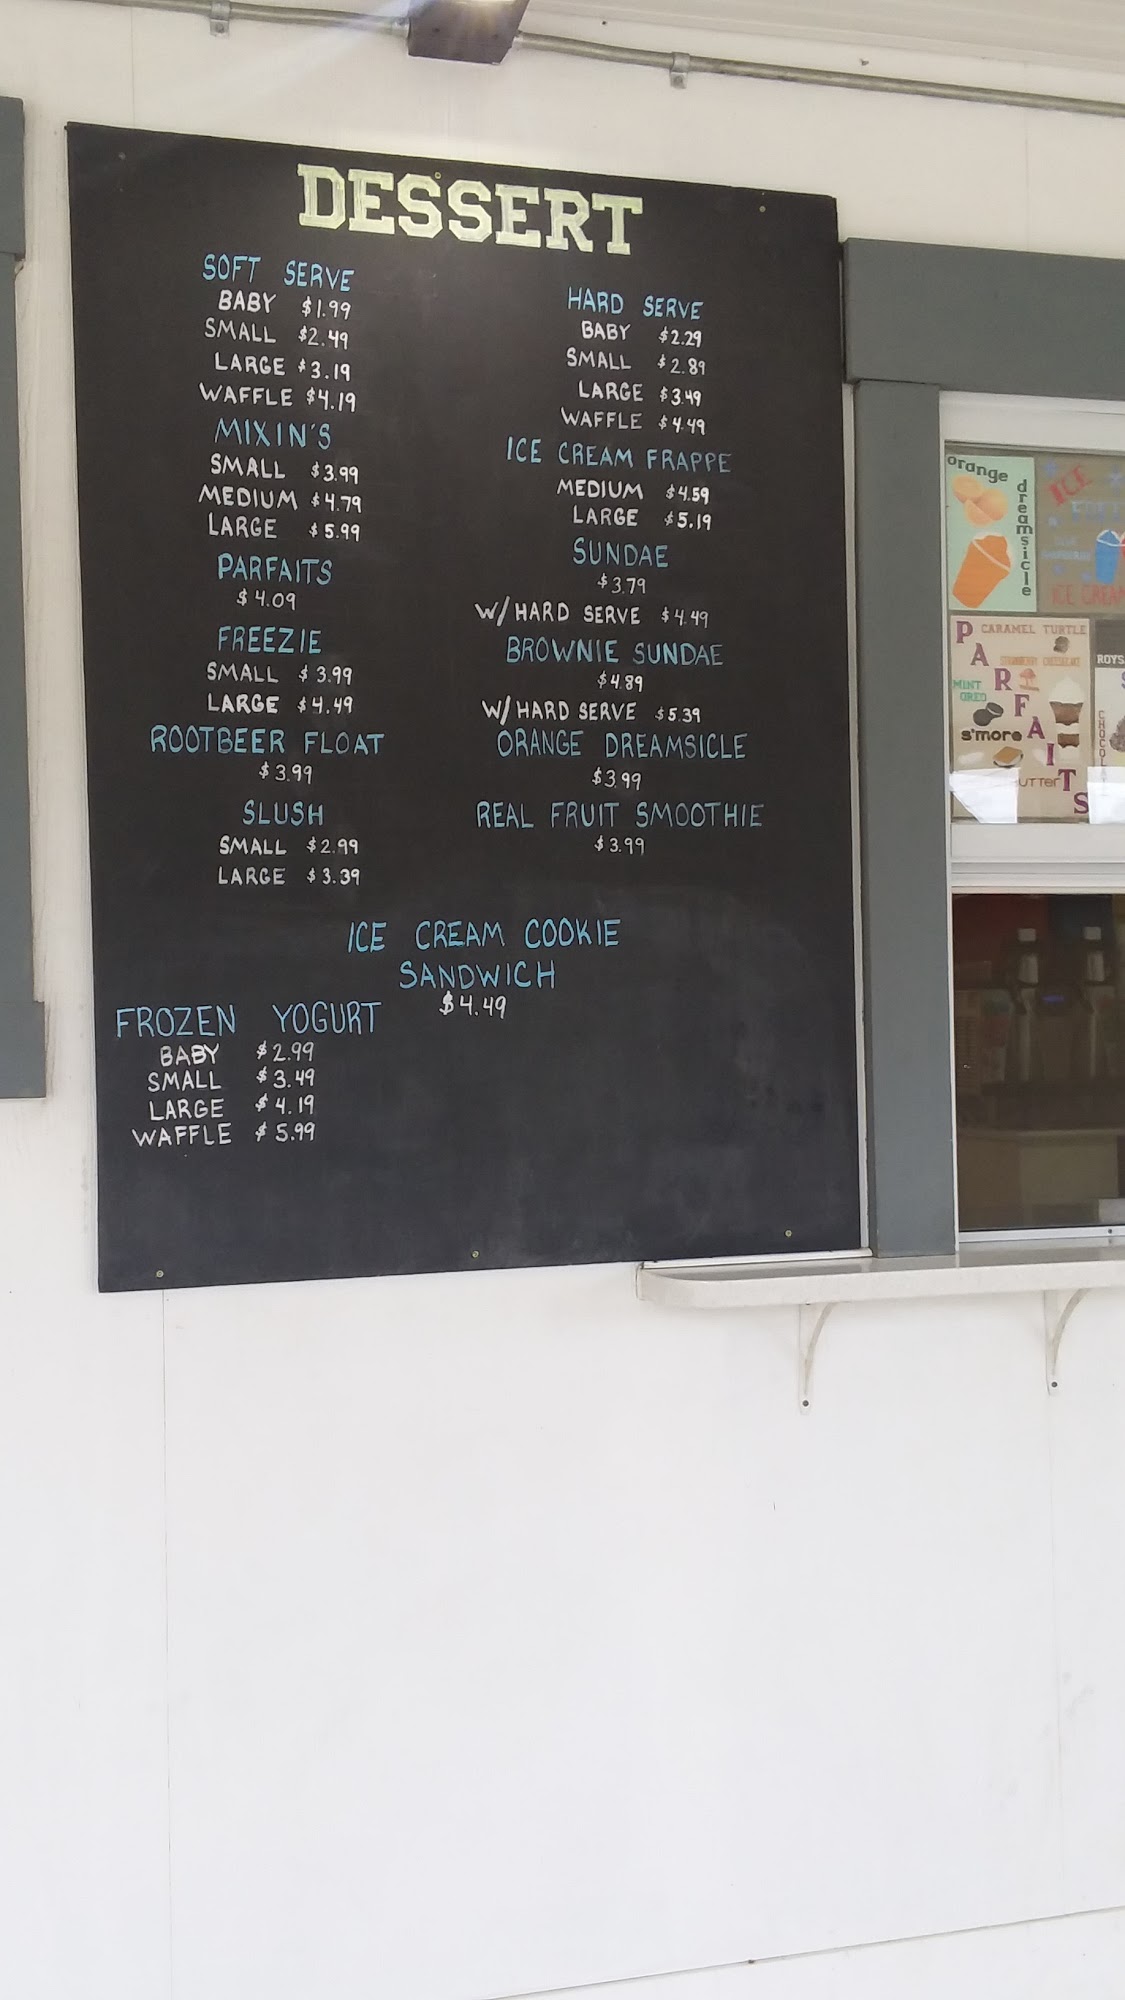 DESSERT
SOFT SERVE
BABY $1.99
SMALL $2.49
LARGE $3.19
WAFFLE $4.19
MIXIN'S
SMALL $3.99
MEDIUM $4.79
LARGE $5.99
PARFAITS
$4.09
FREEZIE
SMALL $3.99
LARGE $4.49
ROOTBEER FLOAT
$3.99
SLUSH
SMALL $2.99
LARGE $3.39
HARD SERVE
BABY $2.29
SMALL $2.89
LARGE $3.49
WAFFLE $4.49
ICE CREAM FRAPPE
MEDIUM $4.59
LARGE $5.19
SUNDAE
$3.79
W/HARD SERVE $4.49
BROWNIE SUNDAE
$4.89
W/HARD SERVE $5.39
ORANGE DREAMSICLE
$3.99
REAL FRUIT SMOOTHIE
$3.99
ICE CREAM COOKIE
SANDWICH
$4.49
FROZEN YOGURT
BABY $2.99
SMALL $3.49
LARGE $4.19
WAFFLE $5.99
orange
dreamsicle
ICE
ICE CREAM
PARFAITS
CARAMEL TURTLE
STRAWBERRY CHEESECAKE
MINT
OREO
s'more
ROYS